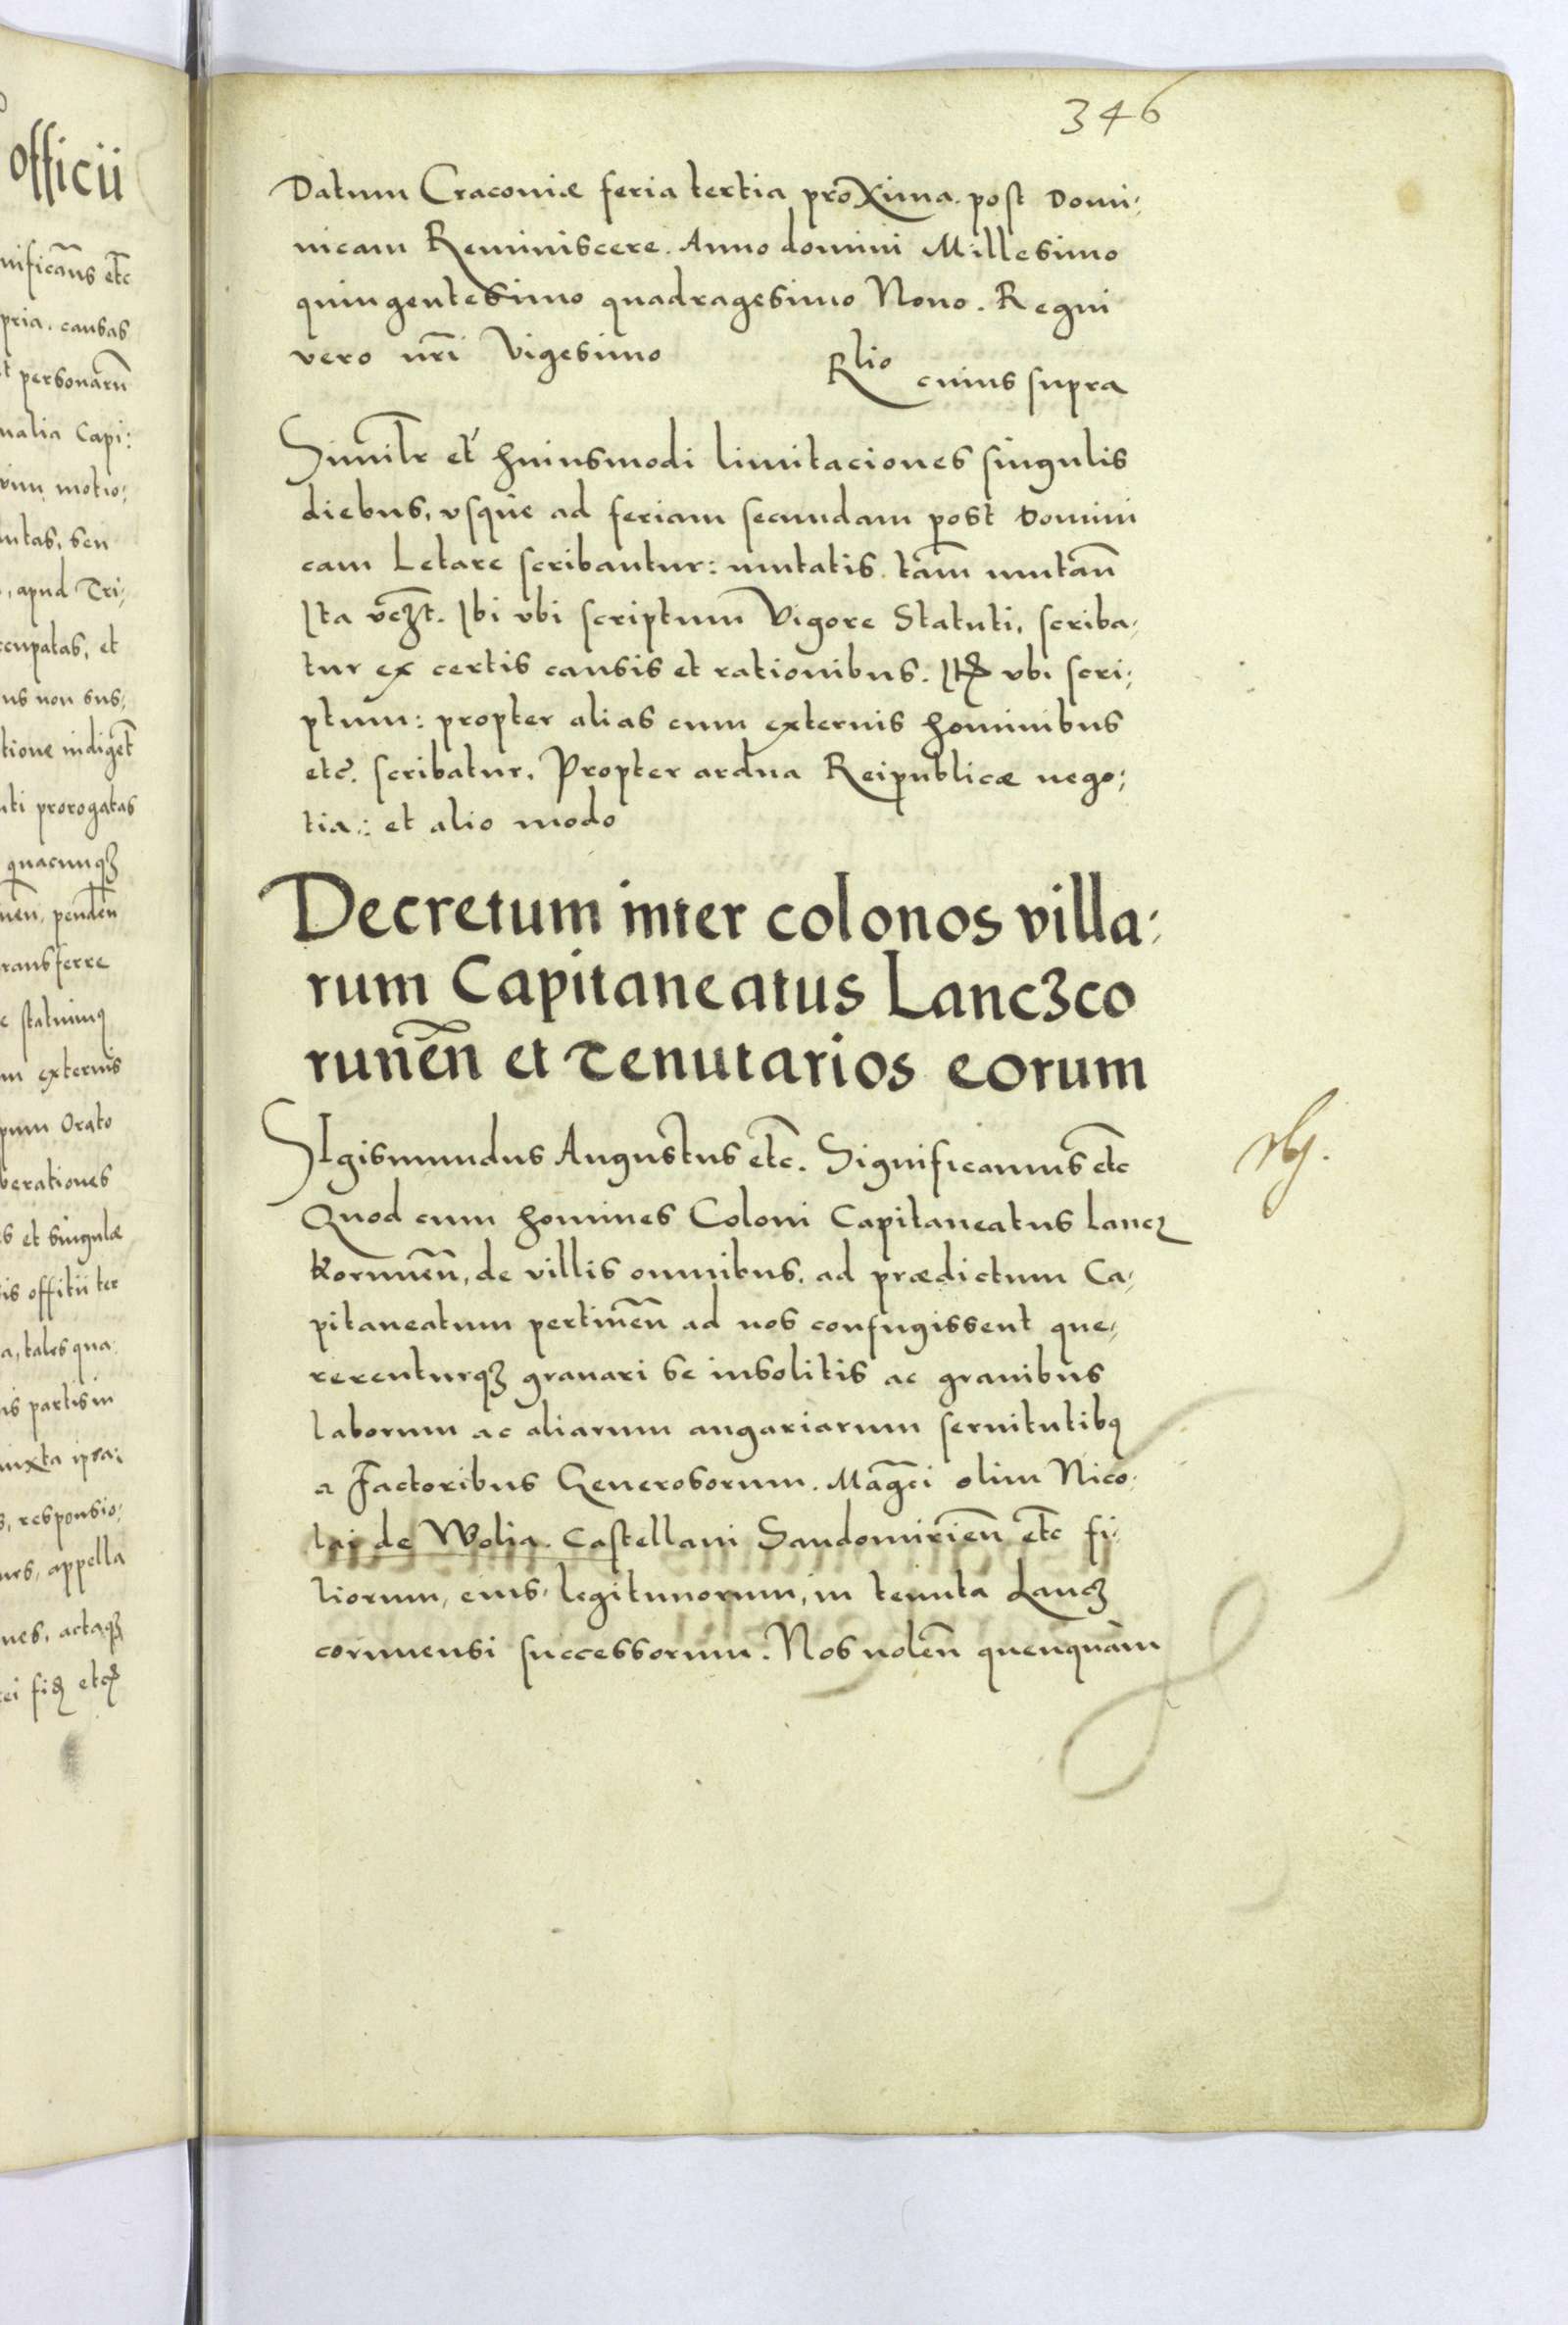 officii
nificam̃s etc̃
pria. causas
personarũ
nalia Capi:
motio:
seu
, apud Tri:
ccupatas, et
us non sus:
tione indiget
uti prorogatas
quacunqꝫ
penden̄
transferre
externis
Orato
berationes
s et singulæ
is offitii ter
a, tales qua
is partis in
iuxta ipsa:
responsio:
appella
nes, actaqꝫ
346
Datum Craconiæ feria tertia proXima. post Domi:
nicam Reminiscere. Anno domini Millesimo
quingentesimo quadragesimo Nono. Regni
vero nr̃i Vigesimo
Rlio cuius supra
Similr̃ et huiusmodi limitaciones singulis
diebus, vsque ad feriam secundam post Domini
cam Letare scribantur: mutatis. tam̃ mutan̄
Ita vcꝫt. Ibi vbi scriptum Vigore Statuti, scriba:
tur ex certis causis et rationibus. Itꝫ vbi scri:
ptum: propter alias cum externis hominibus
etc̃. scribatur. Propter ardua Reipublicæ nego:
tia: et alio modo
Decretum inter colonos villa:
rum Capitaneatus Lancꝫco
runen̄ et Tenutarios eorum
SIgismundus Augustus etc̃. Significamus etc̃
Quod cum homines Coloni Capitaneatus lancꝫ
korunen̄, de villis omnibus, ad prædictum Ca:
pitaneatum pertinen̄ ad nos confugissent que:
rerenturqꝫ grauari se insolitis ac grauibus
laborum ac aliarum angariarum seruitutibꝯ
a Factoribus Generosorum. Mag̃ci olim Nico:
lai de Wolia. Castellani Sandomirien̄ etc̃ fi:
liorum, eius, legitimorum, in tenuta Lancꝫ
corunensi successorum. Nos nolen̄ quenquàm